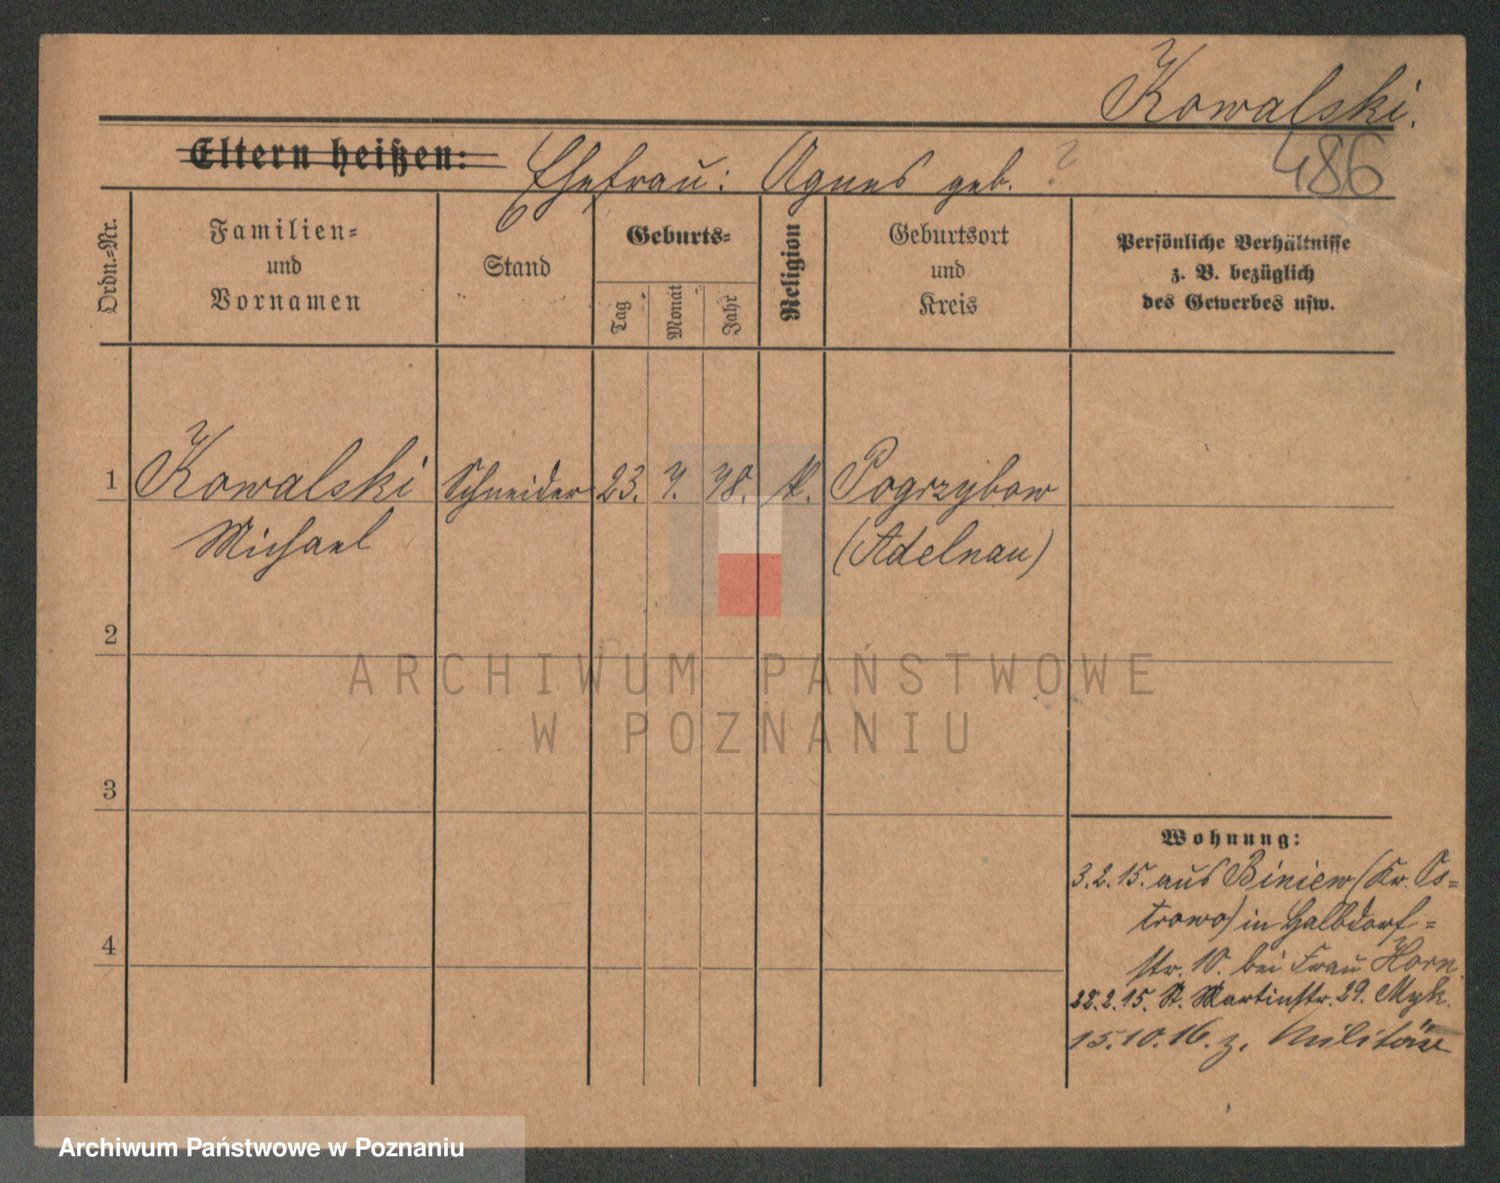 Kowalski.
486
Eltern heißen: Ehefrau: Agnes geb. ?
Ordn.-Nr.
Familien-
und
Vornamen
Stand
Geburts-
Tag
Monat
Jahr
Religion
Geburtsort
und
Kreis
Persönliche Verhältnisse
z. B. bezüglich
des Gewerbes usw.
1 Kowalski Schneider 23. k. Pogrzybow
Michael (Adelnau)
2
3
4
Wohnung:
3.2.15. aus Biniew (Kr. Os=
trowo) in Halbdorf=
str. 10. bei Frau Horn.
22.2.15. St. Martinstr. 29.
15.10.16. z. Militär
ARCHIWUM PAŃSTWOWE
W POZNANIU
Archiwum Państwowe w Poznaniu